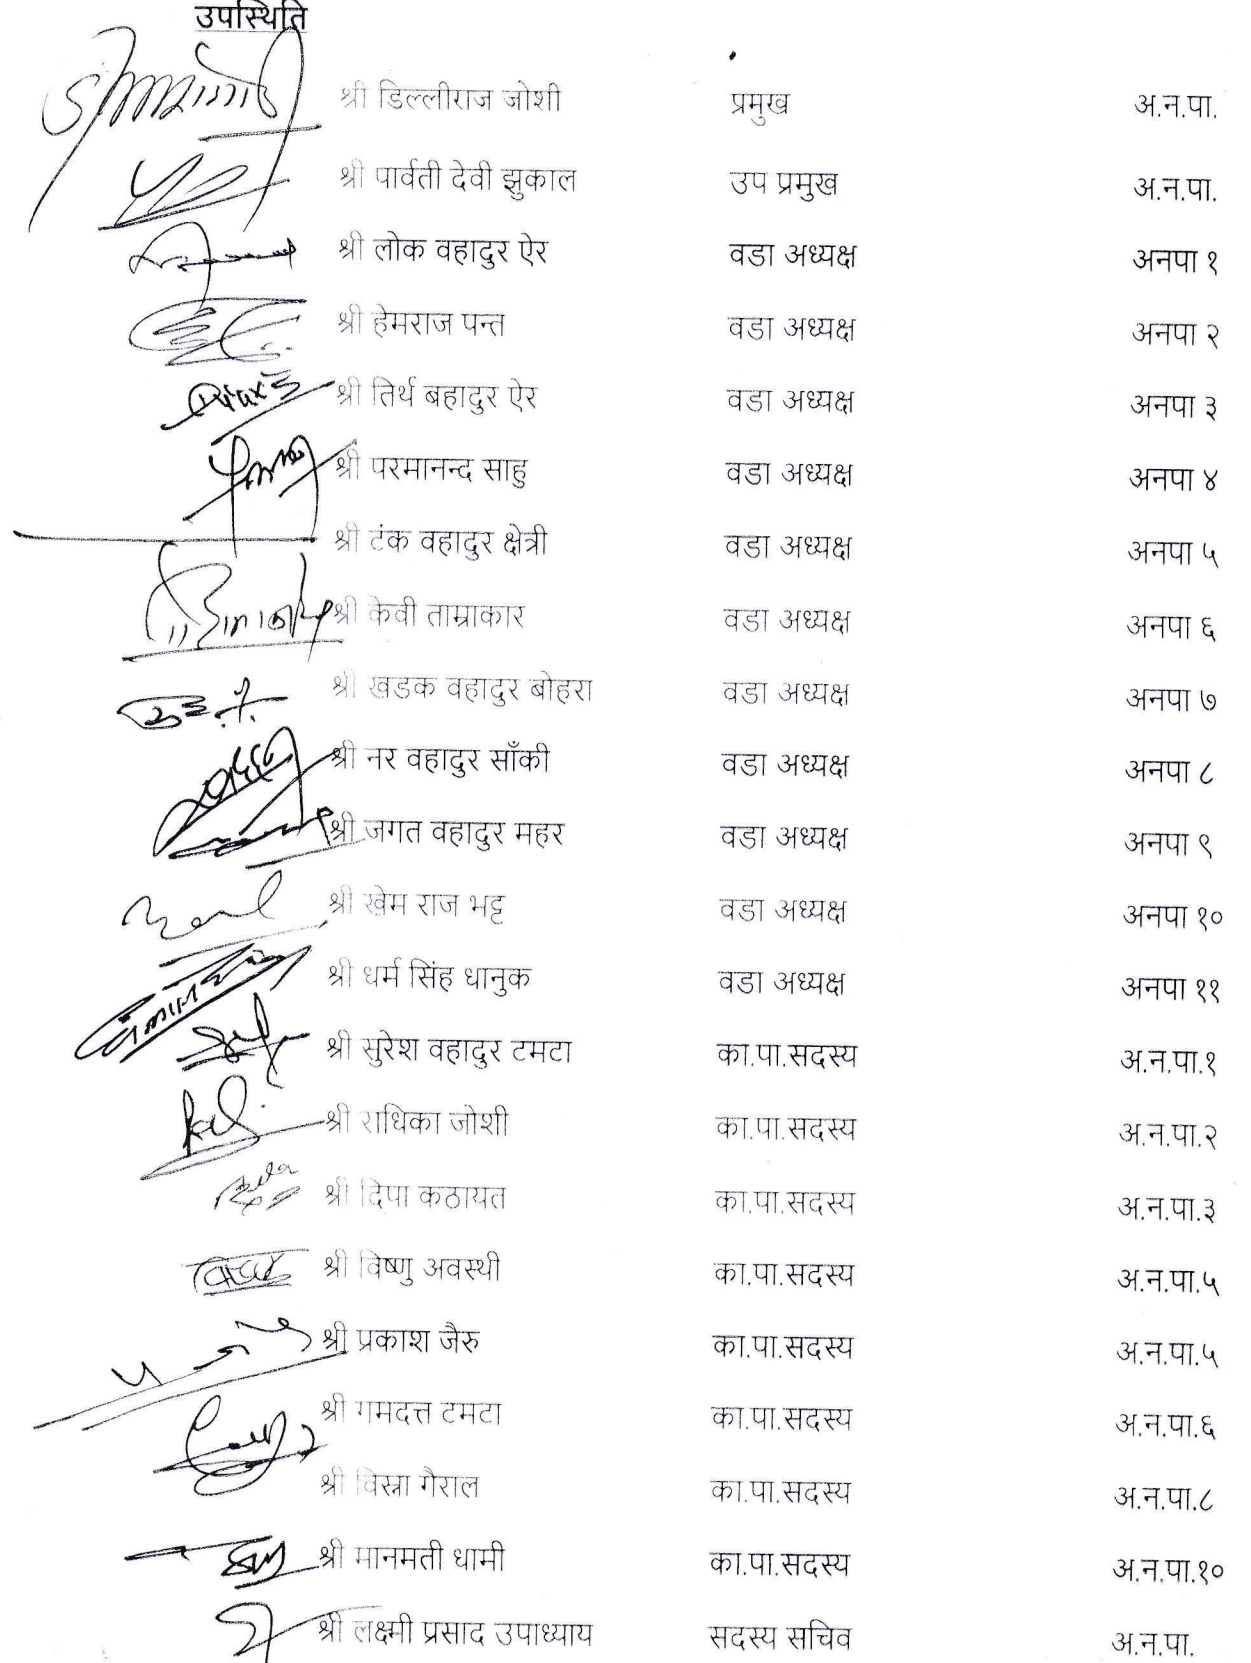 उपस्थिति
श्री डिल्लीराज जोशी प्रमुख अ.न.पा.
श्री पार्वती देवी झुकाल उप प्रमुख अ.न.पा.
श्री लोक वहादुर ऐर वडा अध्यक्ष अनपा १
श्री हेमराज पन्त वडा अध्यक्ष अनपा २
श्री तिर्थ बहादुर ऐर वडा अध्यक्ष अनपा ३
श्री परमानन्द साहु वडा अध्यक्ष अनपा ४
श्री टंक वहादुर क्षेत्री वडा अध्यक्ष अनपा ५
श्री केवी ताम्राकार वडा अध्यक्ष अनपा ६
श्री खडक वहादुर बोहरा वडा अध्यक्ष अनपा ७
श्री नर वहादुर साँकी वडा अध्यक्ष अनपा ८
श्री जगत वहादुर महर वडा अध्यक्ष अनपा ९
श्री खेम राज भट्ट वडा अध्यक्ष अनपा १०
श्री धर्म सिंह धानुक वडा अध्यक्ष अनपा ११
श्री सुरेश वहादुर टमटा का.पा.सदस्य अ.न.पा.१
श्री राधिका जोशी का.पा.सदस्य अ.न.पा.२
श्री दिपा कठायत का.पा.सदस्य अ.न.पा.३
श्री विष्णु अवस्थी का.पा.सदस्य अ.न.पा.५
श्री प्रकाश जैरु का.पा.सदस्य अ.न.पा.५
श्री गमदत्त टमटा का.पा.सदस्य अ.न.पा.६
श्री विस्ना गैराल का.पा.सदस्य अ.न.पा.८
श्री मानमती धामी का.पा.सदस्य अ.न.पा.१०
श्री लक्ष्मी प्रसाद उपाध्याय सदस्य सचिव अ.न.पा.